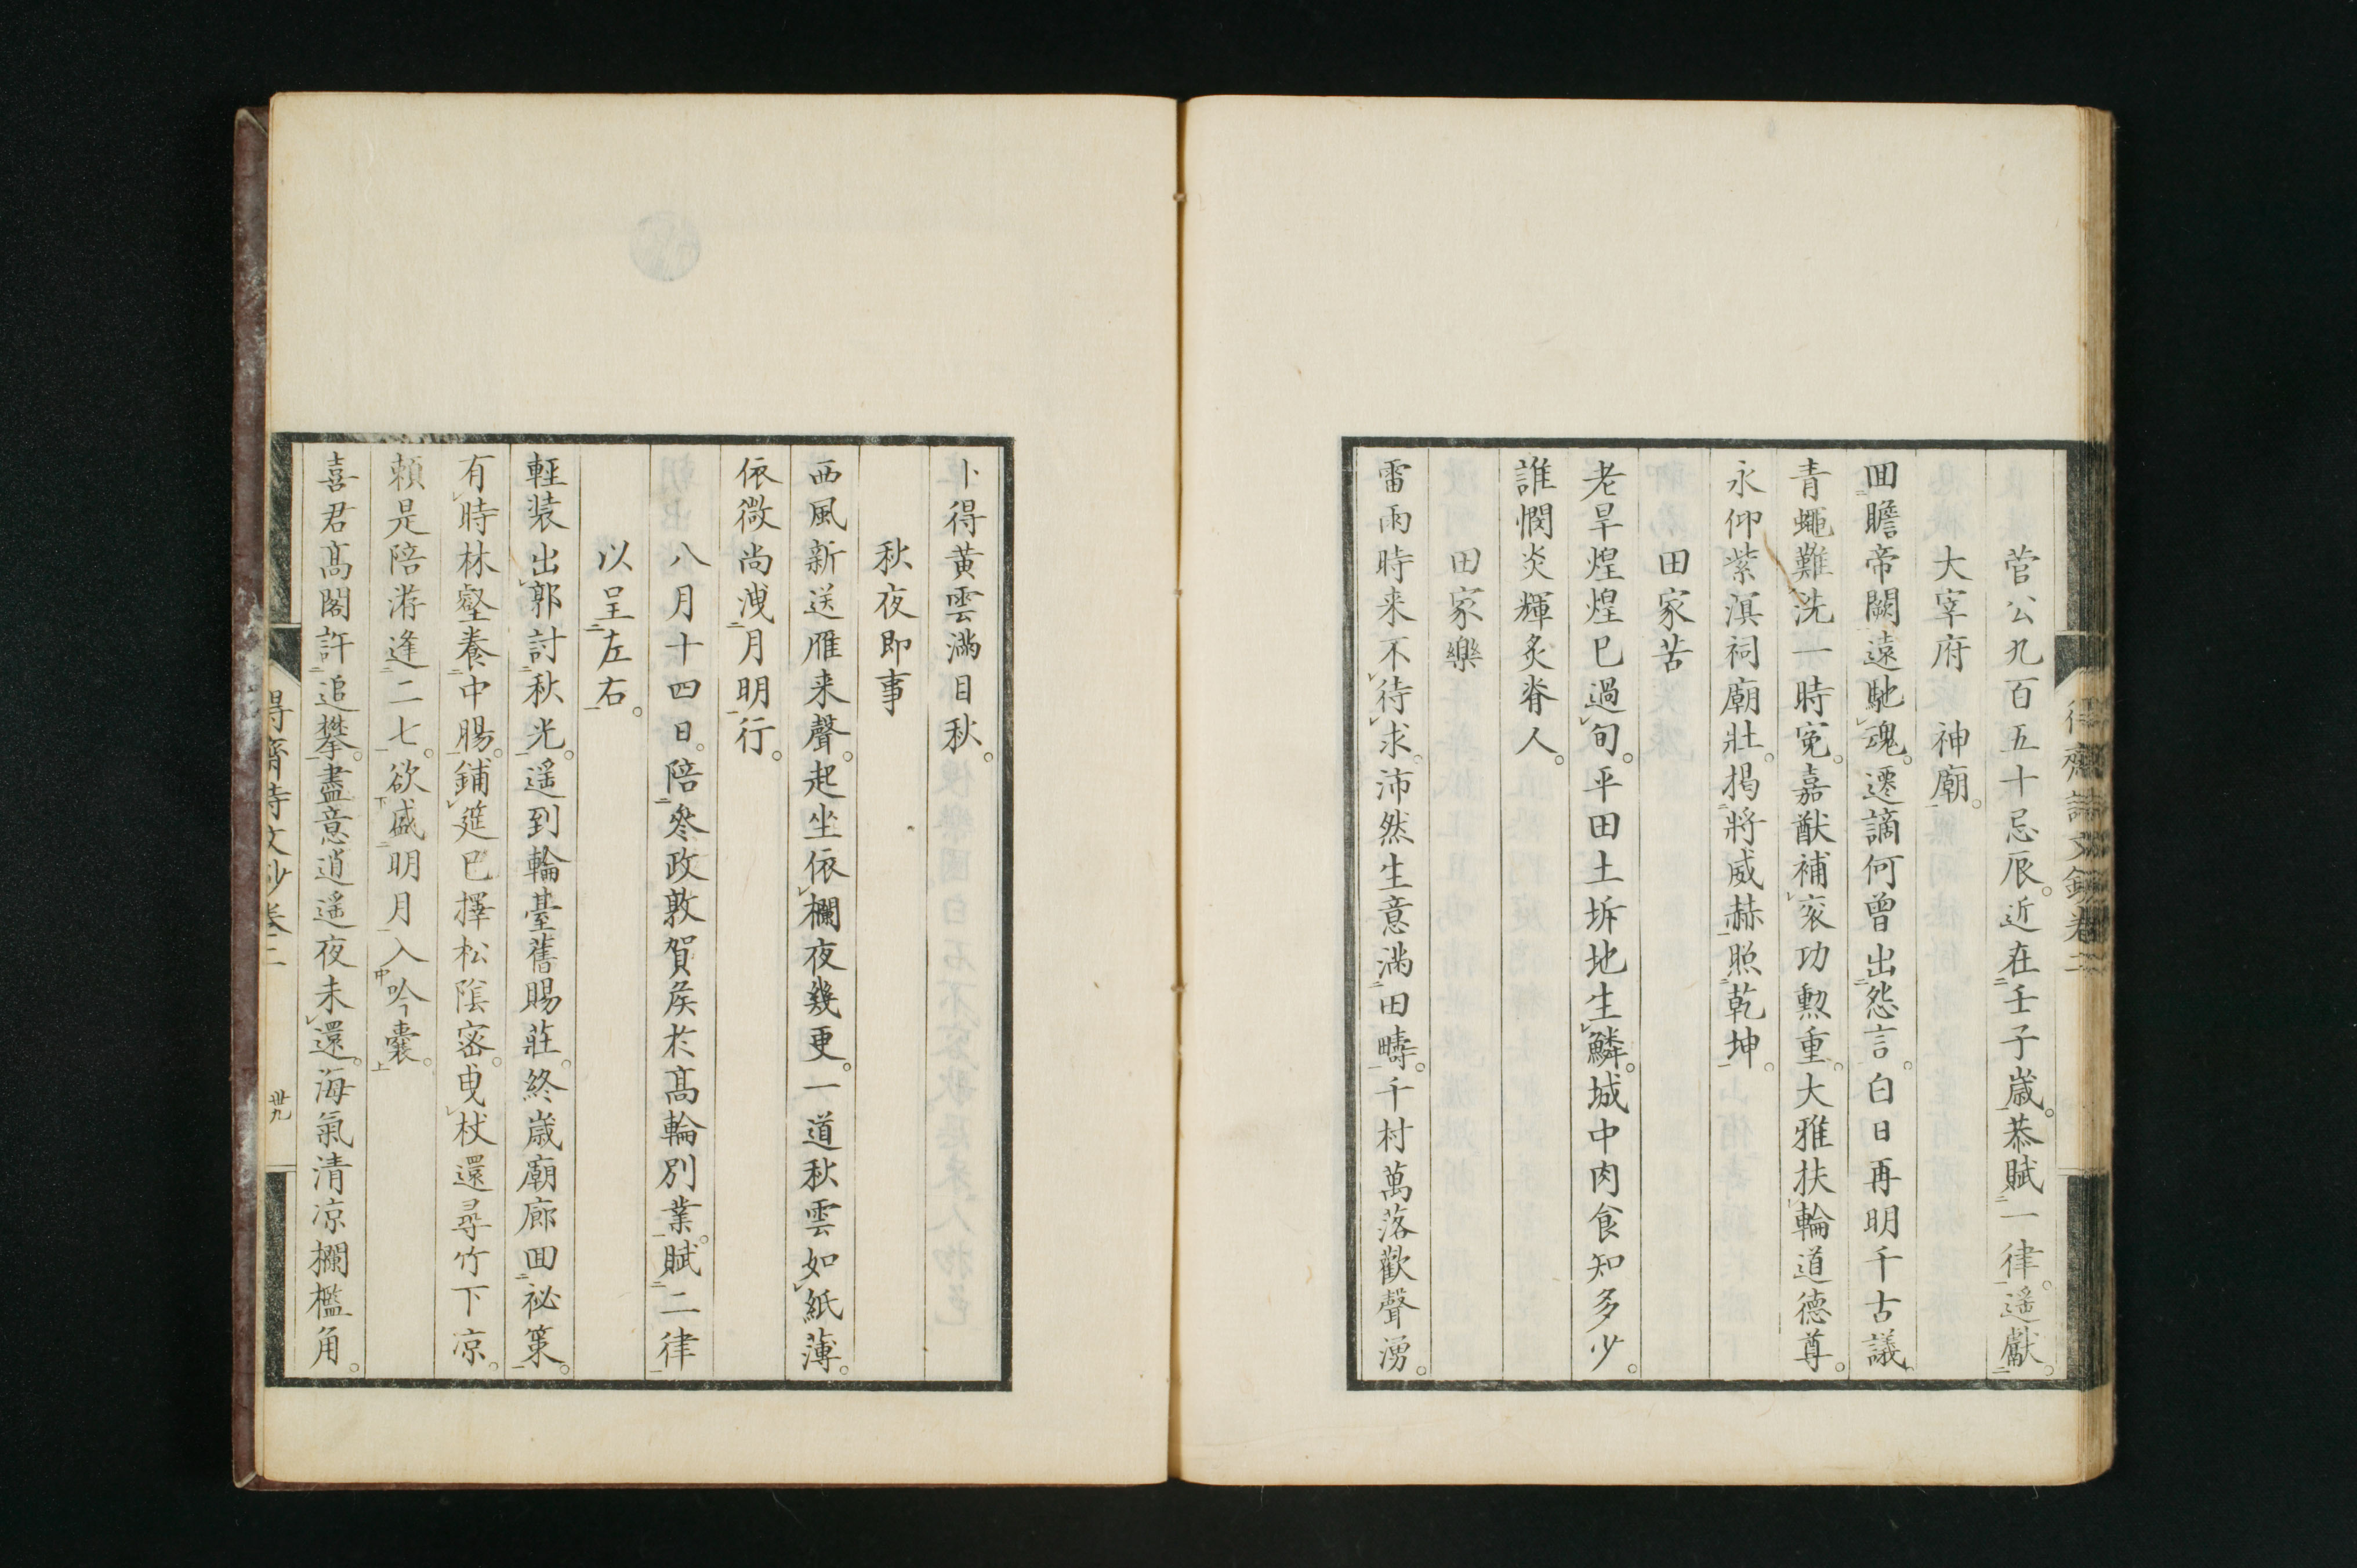 菅公九百五十忌辰。近在壬子歳。恭賦一律。遥獻
大宰府神廟。
囬瞻帝闕遠馳魂。遷謫何曾出怨言。白日再明千古議
青蠅難洗一時寃。嘉猷補衮功勲重。大雅扶輪道德尊。
永仰紫溟祠廟壯。揭將威赫照乾坤。
田家苦
老旱煌煌已過旬。平田土坼地生鱗。城中肉食知多少。
誰憫炎輝炙脊人。
田家樂
雷雨時来不待求。沛然生意滿田疇。千村萬落歡聲湧。
卜得黄雲滿目秋。
秋夜即事
西風新送雁来聲。起坐依欄夜幾更。一道秋雲如紙薄。
依微尚洩月明行。
八月十四日。陪參政敦賀矦於髙輪別業。賦二律
以呈左右。
輕装出郭討秋光。遥到輪臺舊賜莊。終歳廟廊囬祕策。
有時林壑養中腸。鋪筵已擇松陰密。曳杖還尋竹下凉。
頼是陪游逢二七。欲盛明月入吟囊。
喜君髙閣許追攀。盡意逍遥夜未還。海氣清凉欄檻角。
得齋詩文鈔卷二
卅九